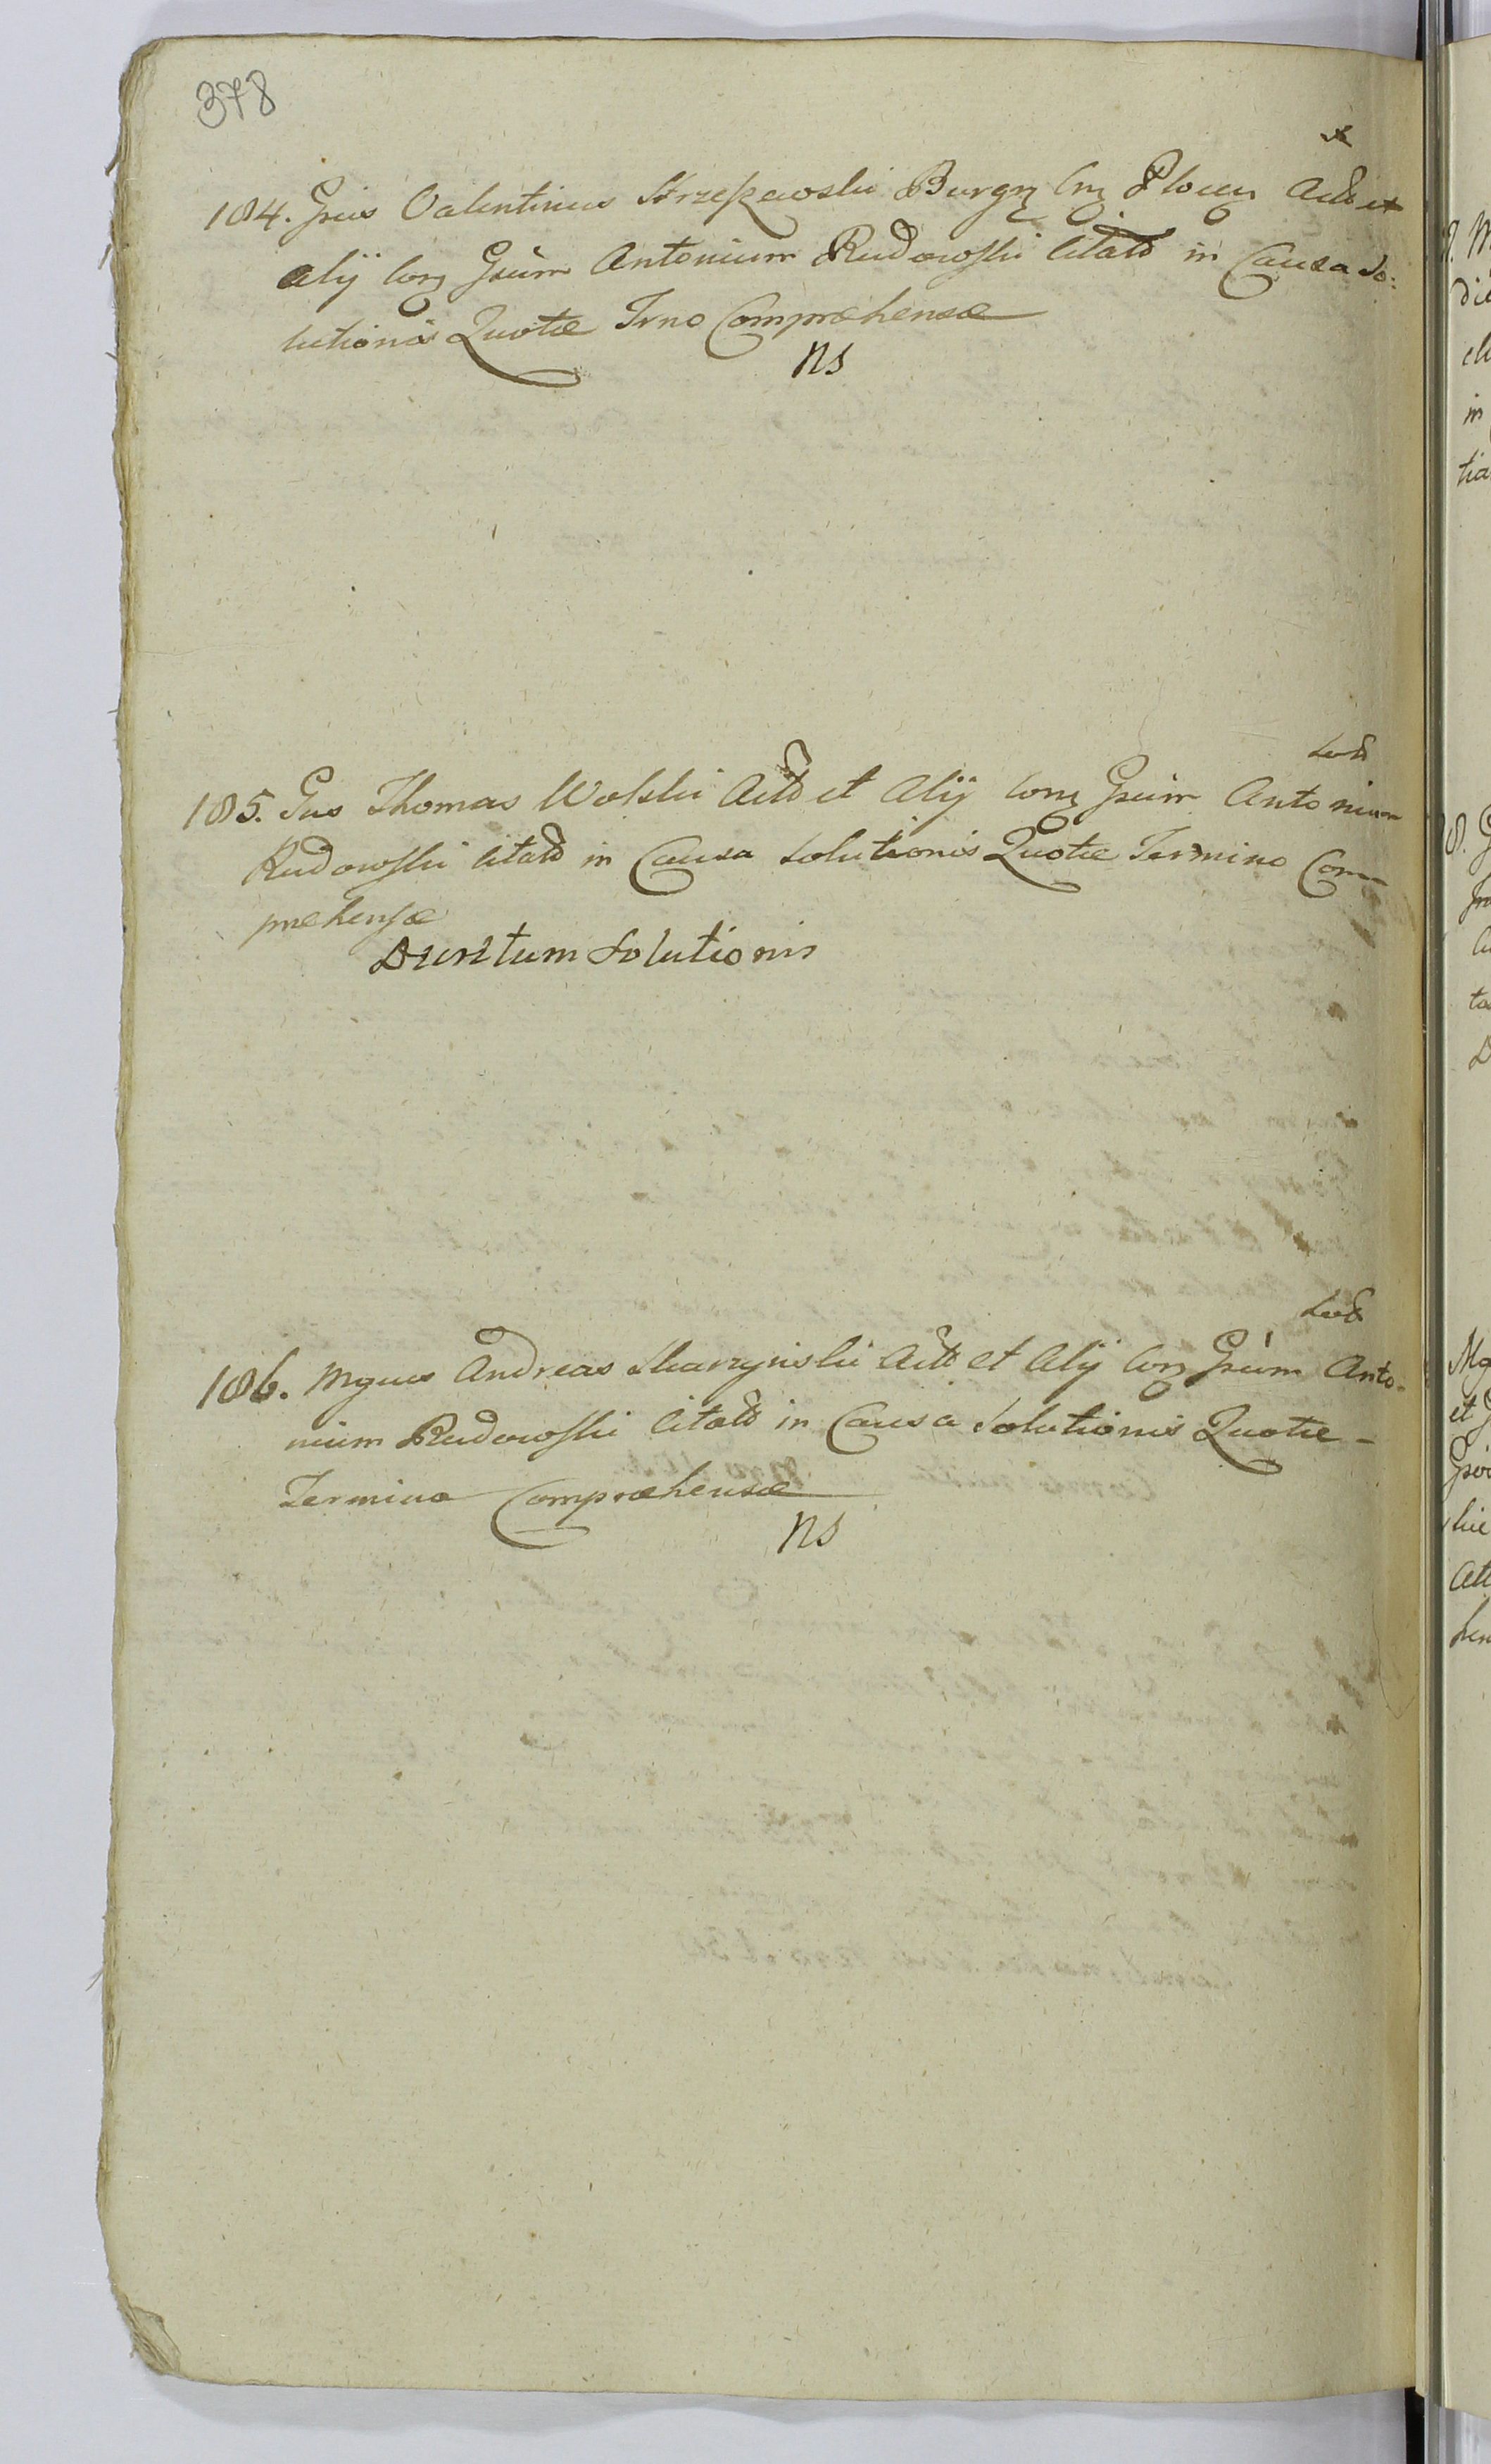 378
184. Grus Valentinus Strzeszewski Burgs Crs Plocen Actd et
alij Cors Grum Antonium Rudowski Citatd in Causa So:
lutionis Quotæ Trno Compræhensæ
NS
185. Gus Thomas Wolski Actd et alij Cors Grum Antonium
Rudowski Citatd in Causa Solutionis Quotæ Termino Com-
præhensæ
Decretum Solutionis
186. Mgnus Andreas Skarzynski Actd et Alij Cors Grum Anto-
nium Rudowski Citatd in Causa Solutionis Quotæ -
Termino Compræhensæ
NS